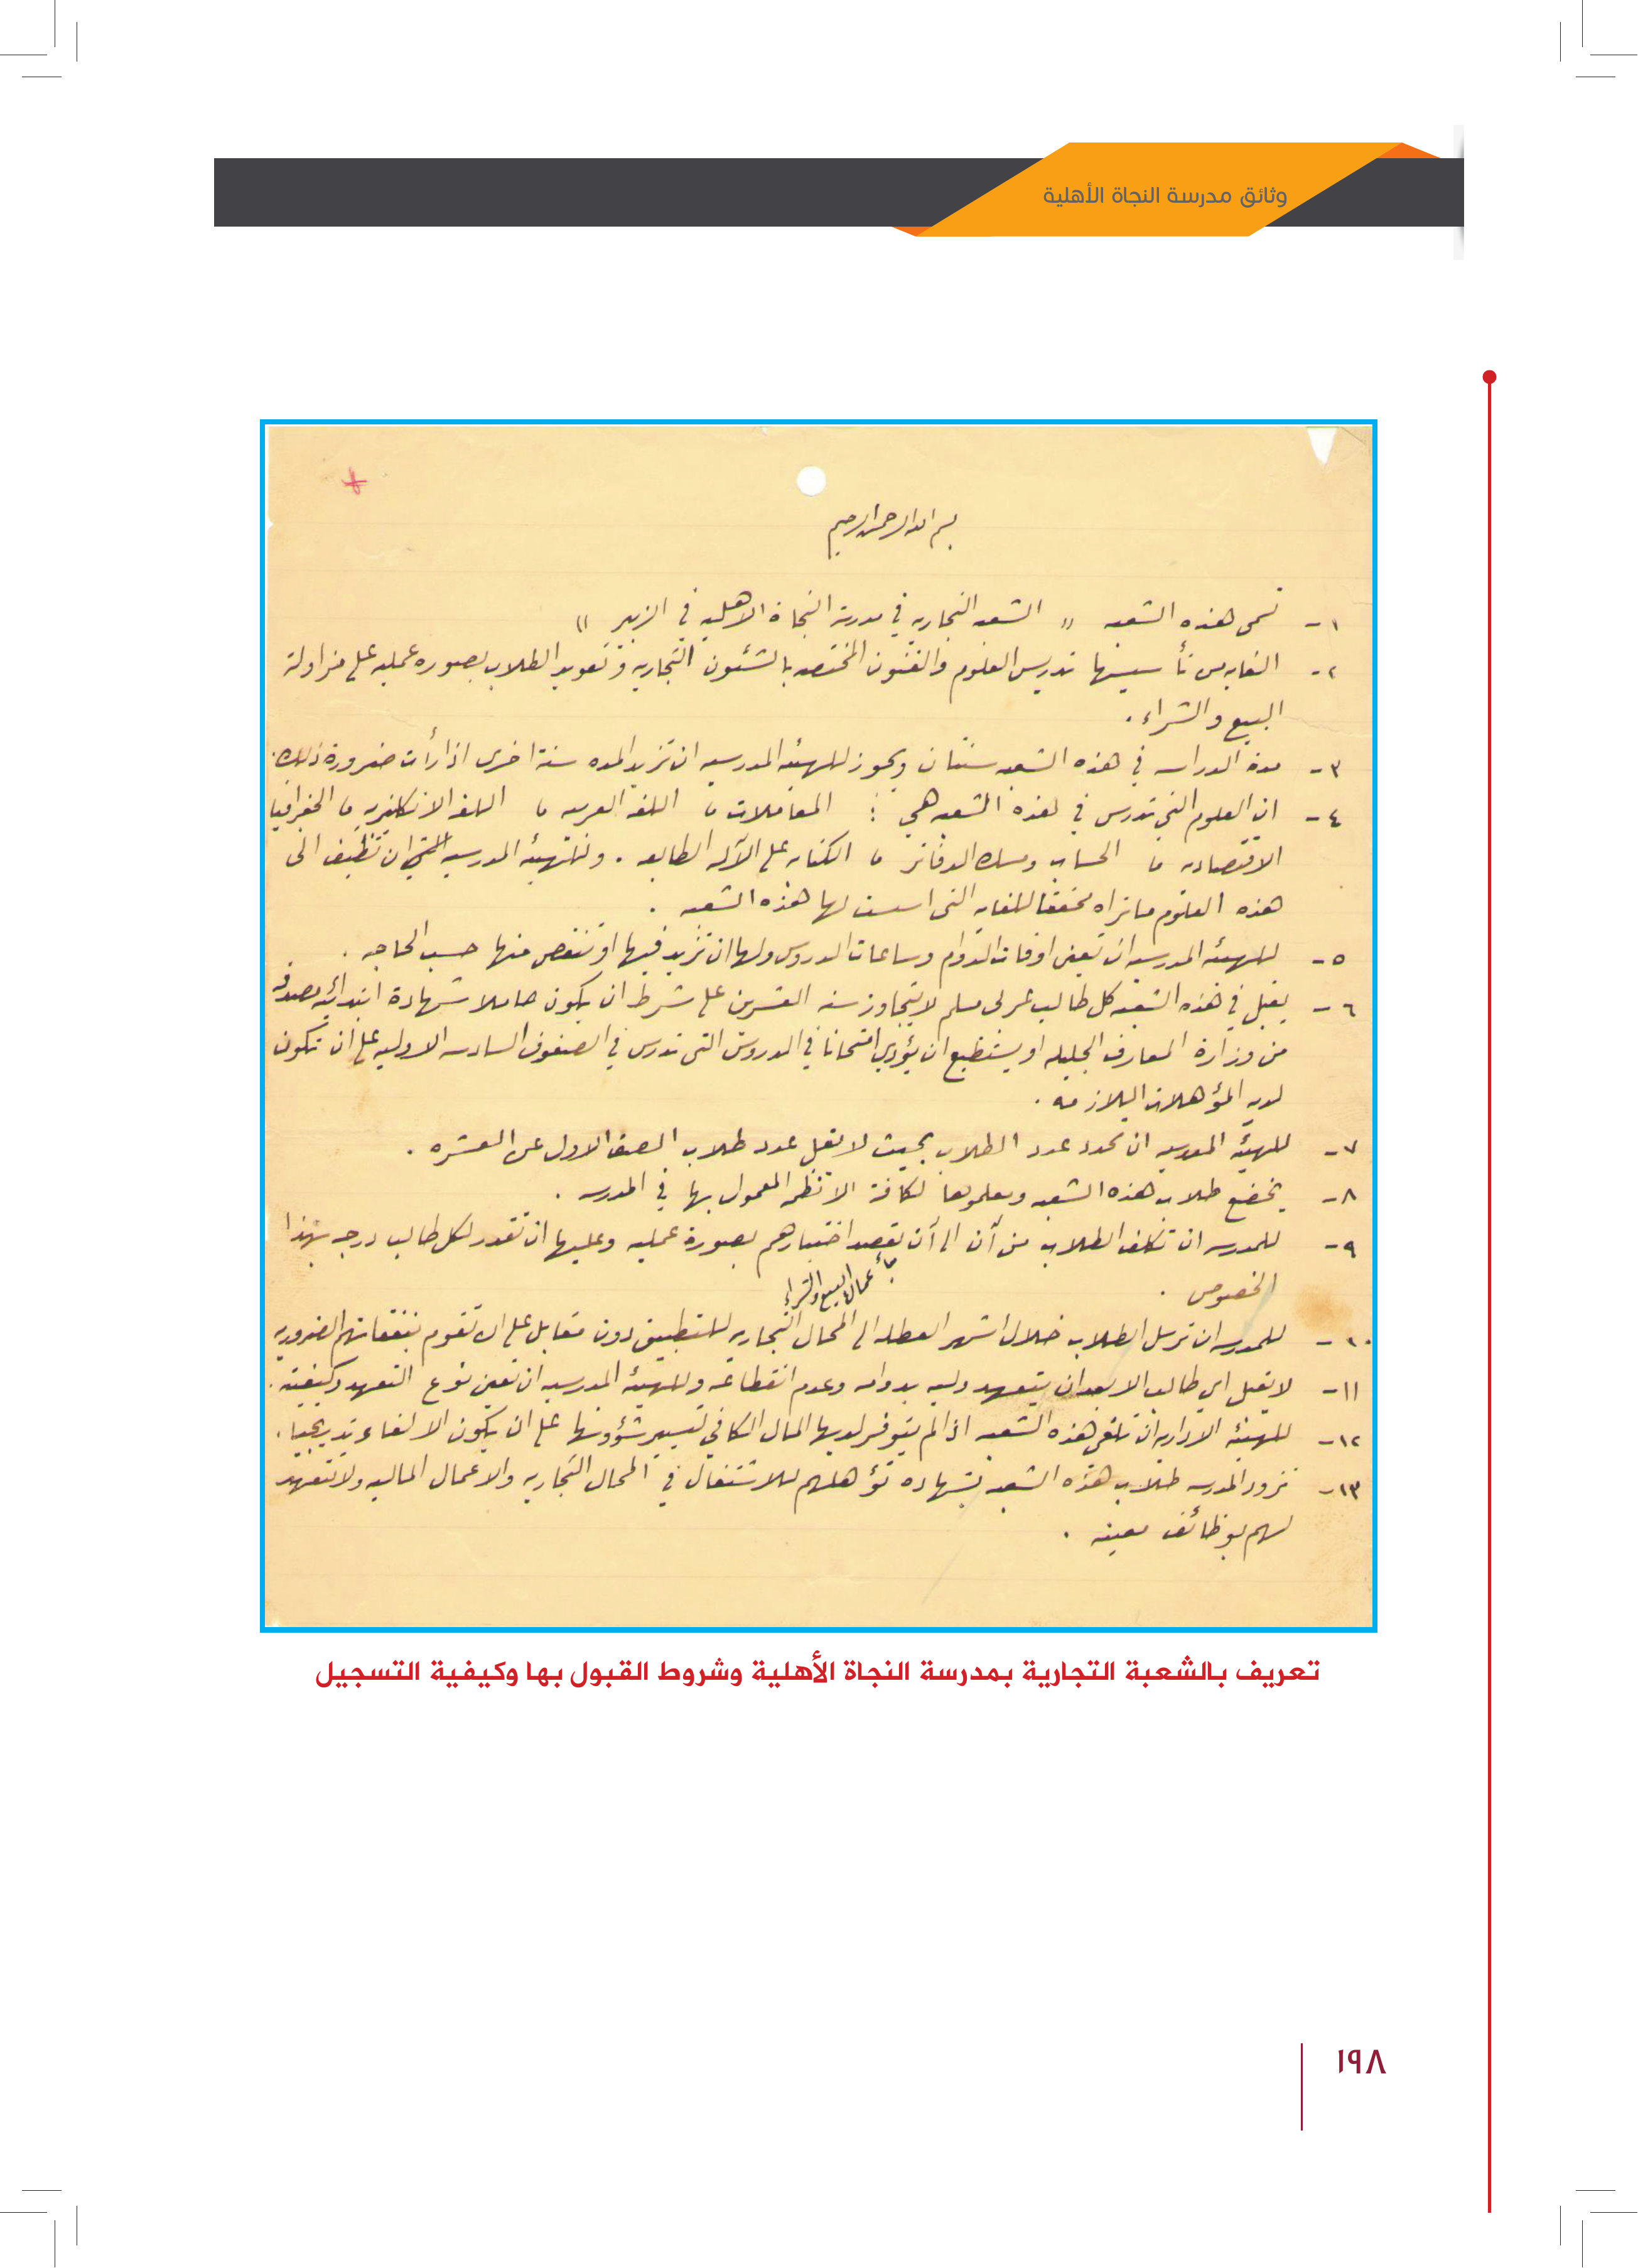 وثائق مدرسة النجاة الأهلية
بسم الله الرحمن الرحيم
١- تسمى هذه الشعبه " الشعبه التجاريه في مدرسة النجاة الاهليه في الزبير "
٢- الغايه من تأسيسها تدريس العلوم والفنون المختصه بالشئون التجاريه وتعويد الطلاب بصوره عمليه على مزاولة
البيع والشراء .
٣- مدة الدراسه في هذه الشعبه سنتان ويجوز للهيئه المدرسيه ان تزيد المده سنة اخرى اذا رأت ضرورة ذلك .
٤- ان العلوم التي تدرس في هذه الشعبه هي : المعاملات ، اللغه العربيه ، اللغه الانكليزيه ، الجغرافيا
الاقتصاديه ، الحساب ومسك الدفاتر ، الكتابه على الآله الطابعه . وللهيئه المدرسيه ان تظيف الى
هذه العلوم ماتراه محققا للغايه التي اسست لها هذه الشعبه .
٥- للهيئه المدرسيه ان تعين اوقات الدوام وساعات الدروس ولها ان تزيد فيها او تنقص منها حسب الحاجه .
٦- يقبل في هذه الشعبه كل طالب عربي مسلم لا يتجاوز سنه العشرين على شرط ان يكون حاملا شهادة ابتدائيه مصدقه
من وزارة المعارف الجليله او يستطيع ان يؤدي امتحانا في الدروس التي تدرس في الصفوف السادسه الاوليه على ان تكون
لديه المؤهلات اللازمه .
٧- للهيئه المدرسيه ان تحدد عدد الطلاب بحيث لا يقل عدد طلاب الصف الاول عن العشره .
٨- يخضع طلاب هذه الشعبه ومعلموها لكافة الانظمه المعمول بها في المدرسه .
٩- للمدرسه ان تكلف الطلاب من آن الى آن بقصد اختبارهم بصورة عمليه وعليها ان تقدر لكل طالب درجه بهذا
الخصوص .
بأعمال البيع والشراء
١٠- للمدرسه ان ترسل الطلاب خلال اشهر العطله الى المحال التجاريه للتطبيق دون مقابل على ان تقوم بنفقاتهم الضروريه
١١- لا يقبل اي طالب الا بعد ان يتعهد وليه بدوامه وعدم انقطاعه وللهيئه المدرسيه ان تعين نوع التعهد وكيفيته .
١٢- للهيئه الاداريه ان تلغي هذه الشعبه اذا لم يتوفر لديها المال الكافي لتسيير شؤونها على ان يكون الالغاء تدريجيا .
١٣- تزود المدرسه طلاب هذه الشعبه بشهاده تؤهلهم للاشتغال في المحال التجاريه والاعمال الماليه ولا تتعهد
لهم بوظائف معينه .
تعريف بالشعبة التجارية بمدرسة النجاة الأهلية وشروط القبول بها وكيفية التسجيل
١٩٨